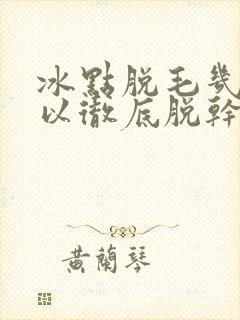 冰點脫毛幾
以徹底脫幹
黃蘭琴